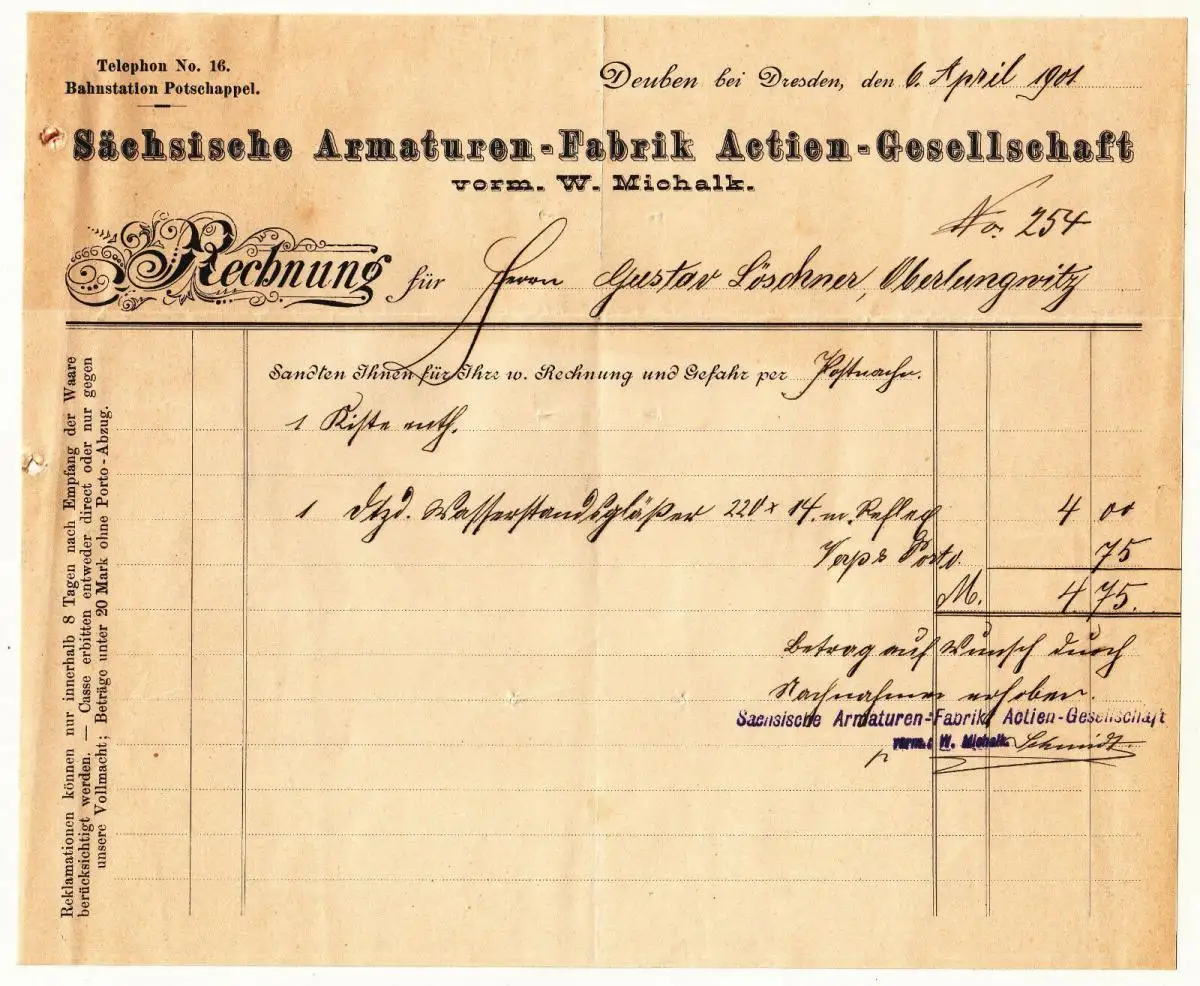 Telephon No. 16.
Bahnstation Potschappel.
Deuben bei Dresden, den 6. April 1901
Sächsische Armaturen-Fabrik Actien-Gesellschaft
vorm. W. Michalk.
No. 254
Rechnung für Herrn Gustav Löschner, Oberlungwitz
Sandten Ihnen für Ihre w. Rechnung und Gefahr per Postnachn.
1 Kiste enth.
1 Dtzd. Wasserstandsgläßer 220 x 14. m. Reflex 4 00
Verp & Porto. 75
M. 4 75.
Betrag auf Wunsch durch
Nachnahme erhoben.
Sächsische Armaturen-Fabrik Actien-Gesellschaft
vorm. W. Michalk.
Schmidt.
Reklamationen können nur innerhalb 8 Tagen nach Empfang der Waare
berücksichtigt werden. — Casse erbitten entweder direct oder nur gegen
unsere Vollmacht; Beträge unter 20 Mark ohne Porto-Abzug.